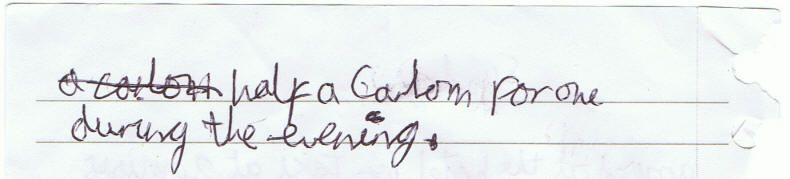 a carton half a Carton for one
during the evening.